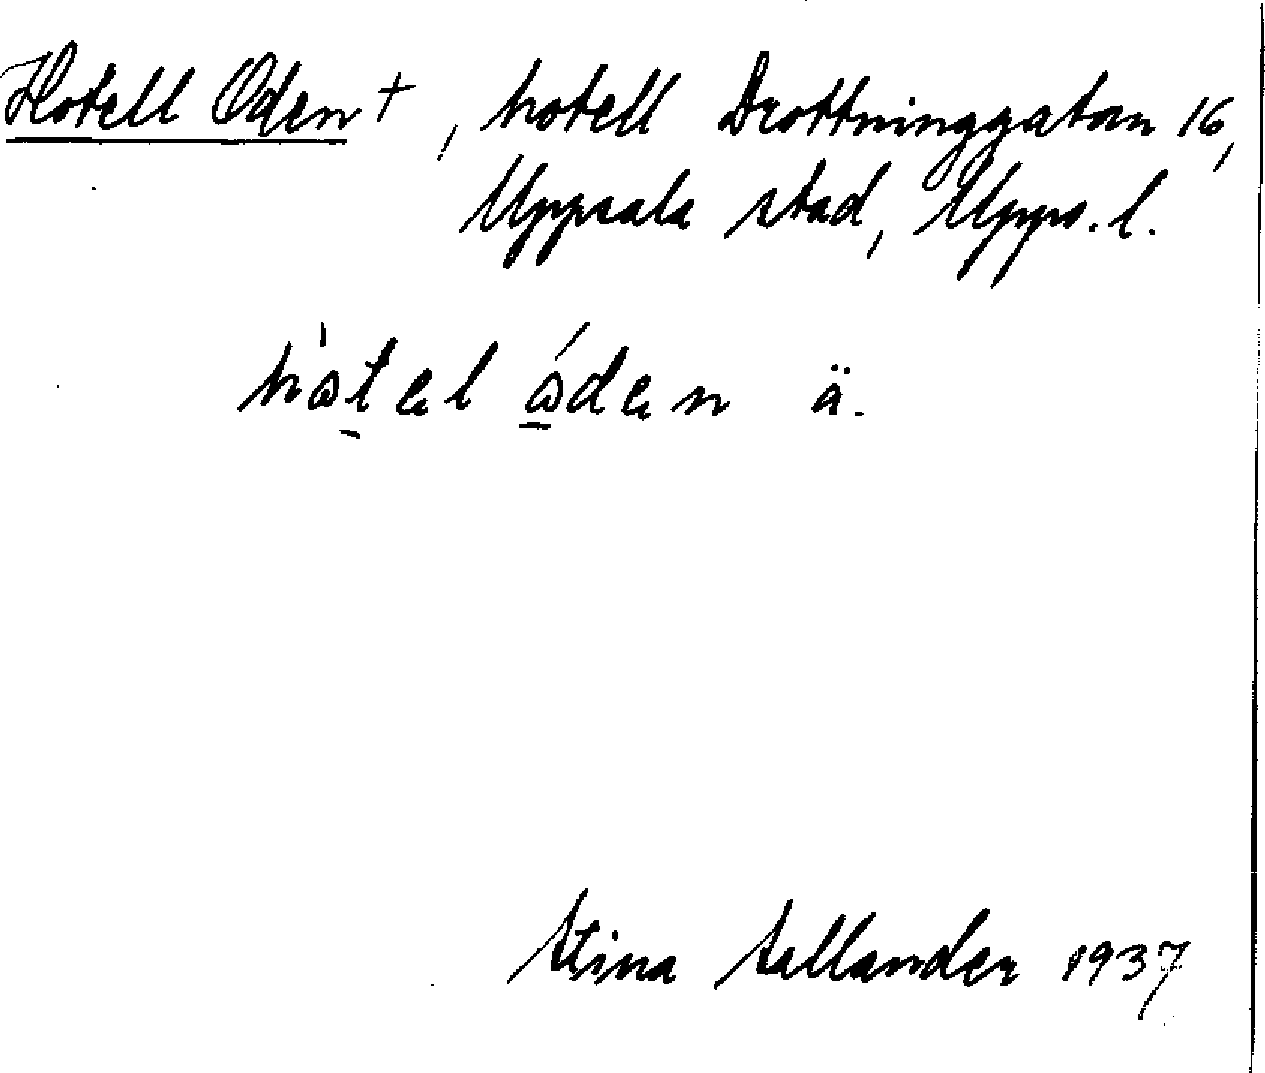 Hotell Oden +, hotell Drottninggatan 16,
Uppsala stad, Upps. l.
håtel óden ä.
Stina Sellander 1937